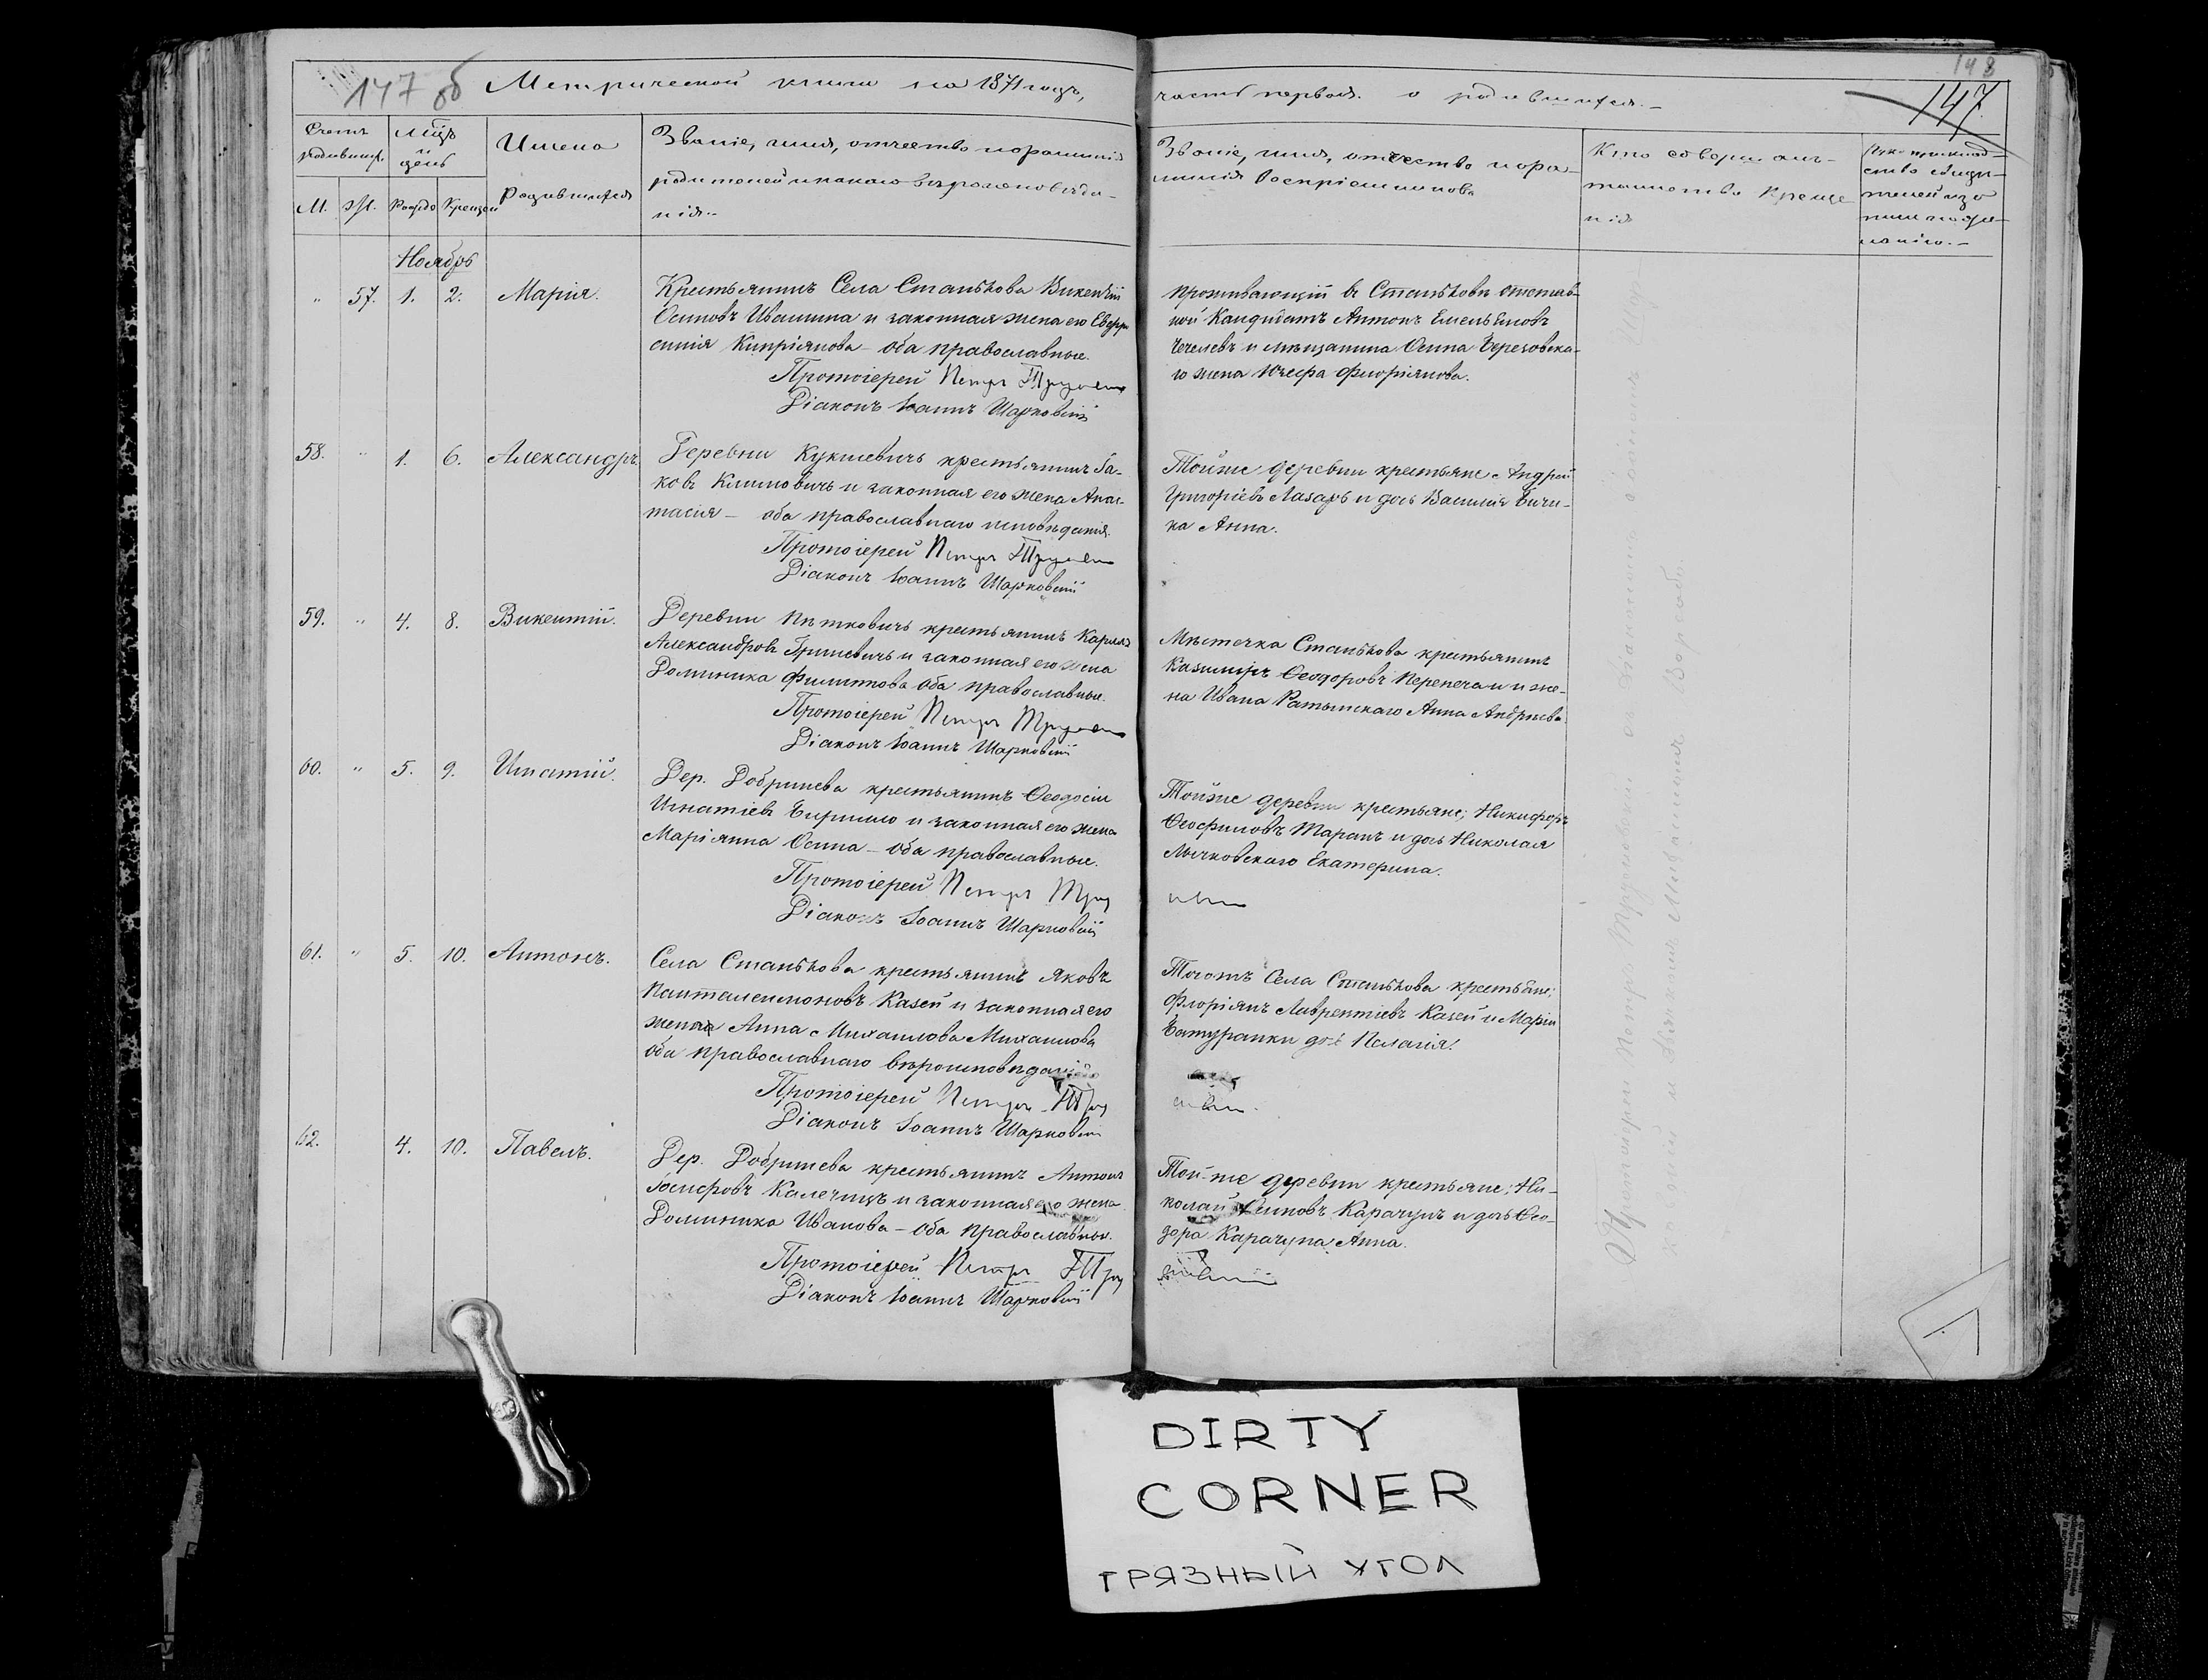 147 об Метрической книги на 1871 годъ,
часть первая. о родившихся.
148
147
Счетъ родивших.
М. Ж.
Мцъ и день
Рожде Крещен
Имена родившихся
Званіе, имя, отчество и фамилія
родителей и какого вероисповеда-
нія.
Званіе, имя, отчество и фа-
милія воспріемниковъ
Кто совершалъ
таинство креще
нія
Рукоприклад-
ство свиде-
телей
Ноябрь
" 57. 1. 2. Марія.
Крестьянинъ Села Станькова Викентій
Осиповъ Ивашина и законная жена его Евфро
синія Кипріянова - оба православные.
Протоіерей Петръ
Діаконъ Іоаннъ Шарковскій
проживающій въ Станьковѣ отстав-
ной Кандидатъ Антонъ Емельяновъ
и мѣщанина Осипа Березовска-
го жена Флоріянова.
58. " 1. 6. Александръ.
Деревни Кукшевичъ крестьянинъ Іа-
ковъ Климовичъ и законная его жена Анас-
тасія - оба православнаго исповѣданія.
Протоіерей Петръ
Діаконъ Іоаннъ Шарковскій
Тойже деревни крестьяне Андрей
Григоріевъ Лазарь и дочь Василія
Анна.
59. " 4. 8. Викентій.
Деревни Петковичъ крестьянинъ
Александровъ Гриневичъ и законная его жена
Доминика Филиппова оба православные.
Протоіерей Петръ
Діаконъ Іоаннъ Шарковскій
Мѣстечка Станькова крестьянинъ
Казимиръ Ѳеодоровъ и же-
на Ивана Ратынскаго Анна Андреева.
60. " 5. 9. Игнатій.
Дер. Добринева крестьянинъ Ѳеодосій
Игнатіевъ и законная его жена
Маріянна Осипа - оба православные.
Протоіерей Петръ
Діаконъ Іоаннъ Шарковскій
Тойже деревни крестьяне; Никифоръ
Ѳеофиловъ Таранъ и дочь Николая
Мычковскаго Екатерина.
61. " 5. 10. Антонъ.
Села Станькова крестьянинъ Яковъ
Панталеимоновъ Казей и законная его
жена Анна Михаилова Михаилова
оба православнаго вѣроисповѣданія
Протоіерей Петръ
Діаконъ Іоаннъ Шарковскій
Тогожъ Села Станькова крестьяне;
Флоріянъ Лаврентіевъ Казей и Маріи
дочь Пелагія.
62. 4. 10. Павелъ.
Дер. Добринева крестьянинъ Антонъ
Іосифовъ Калечицъ и законная его жена
Доминика Иванова - оба православные.
Протоіерей Петръ
Діаконъ Іоаннъ Шарковскій
Той-же деревни крестьяне; Ни-
колай Осиповъ Карачунъ и дочь Ѳео-
дора Карачуна Анна.
DIRTY
CORNER
ГРЯЗНЫЙ УГОЛ